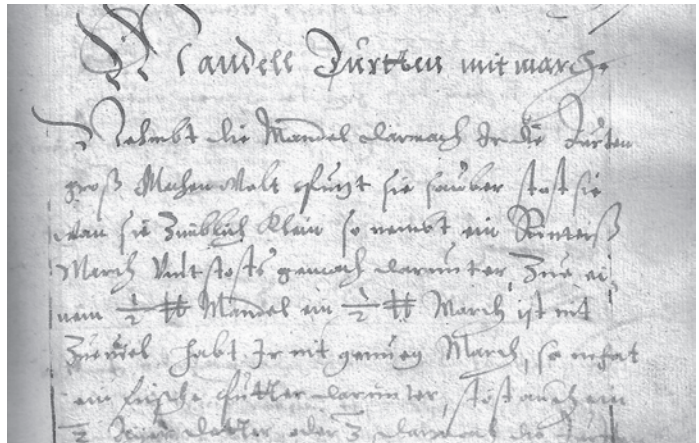 Mandell Durtten mit march
Nehmbt die Mandel darnach Ir die Durten
groß Machen Welt pfuzt sie sauber stost sie
wan sie Zimblich Klein so nembt ein Rintneiß
March Unt stosts gemach darunter, Zue ei-
nem ½ ℔ Mandel ein ½ ℔ March ist nit
Zueuiel habt Ir nit genueg March, so
ein frische darunter, stost auch ein